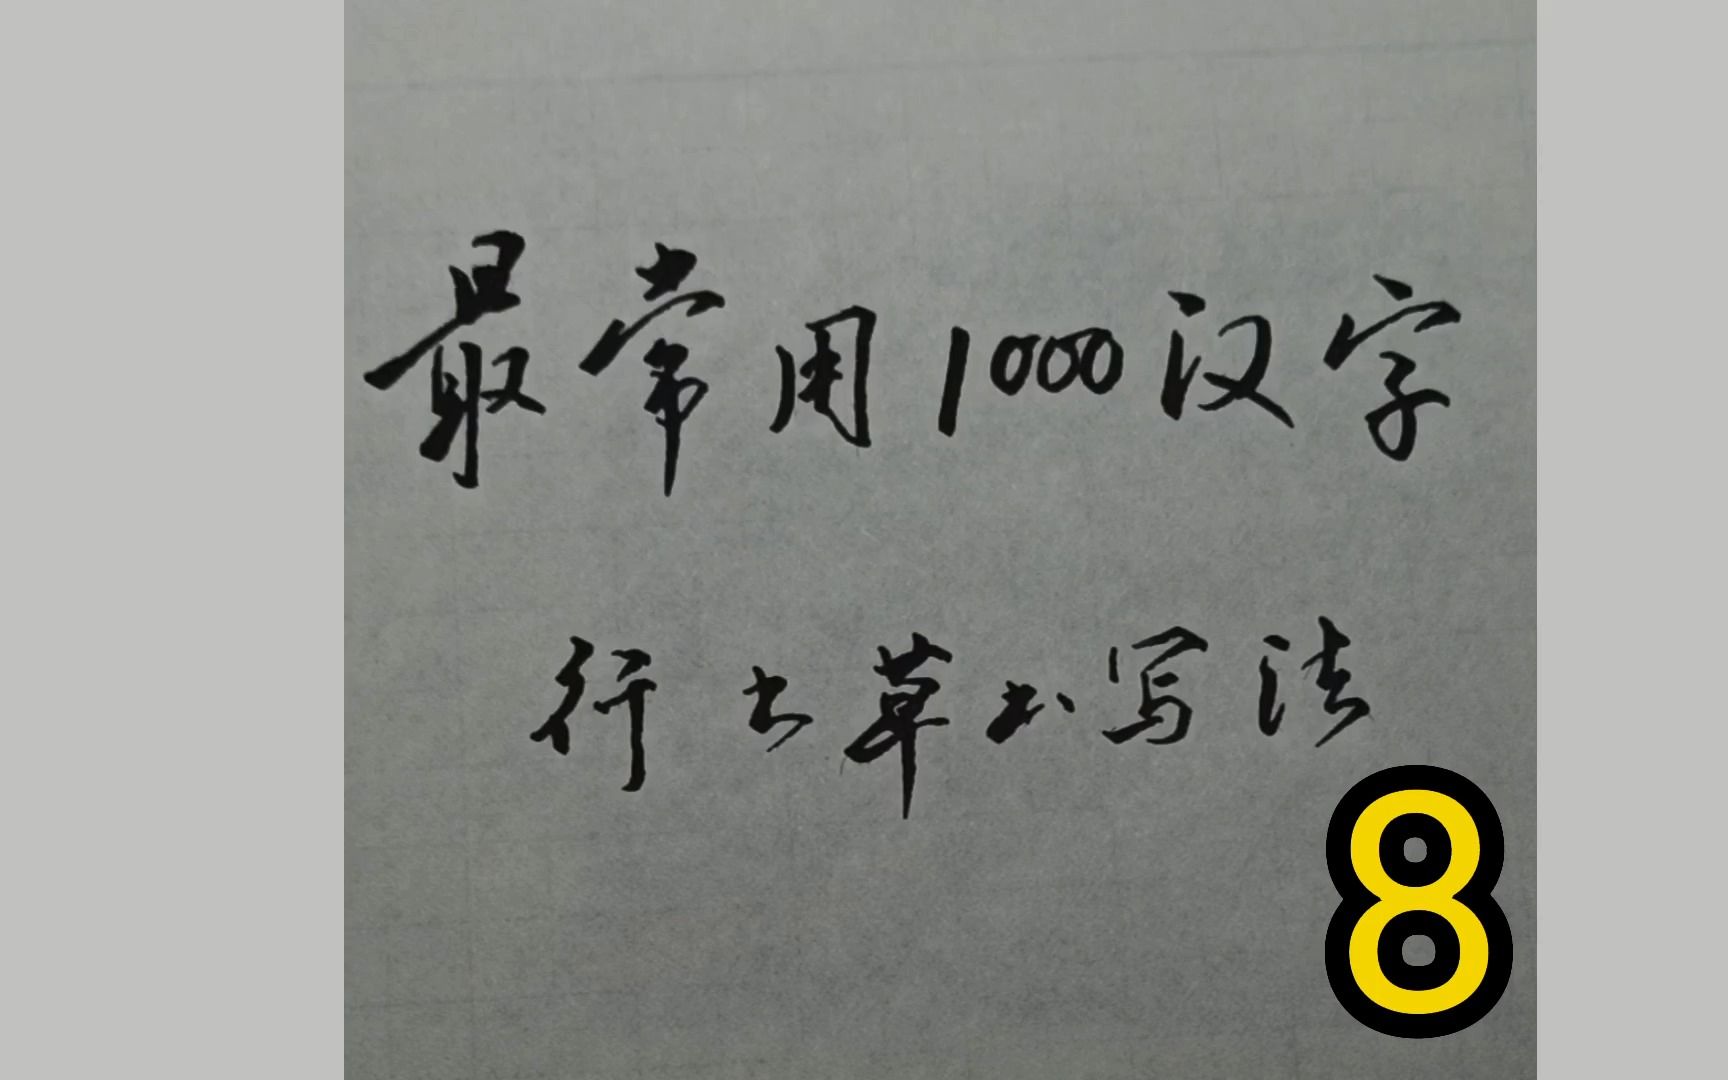 最常用1000汉字
行书草书写法
8